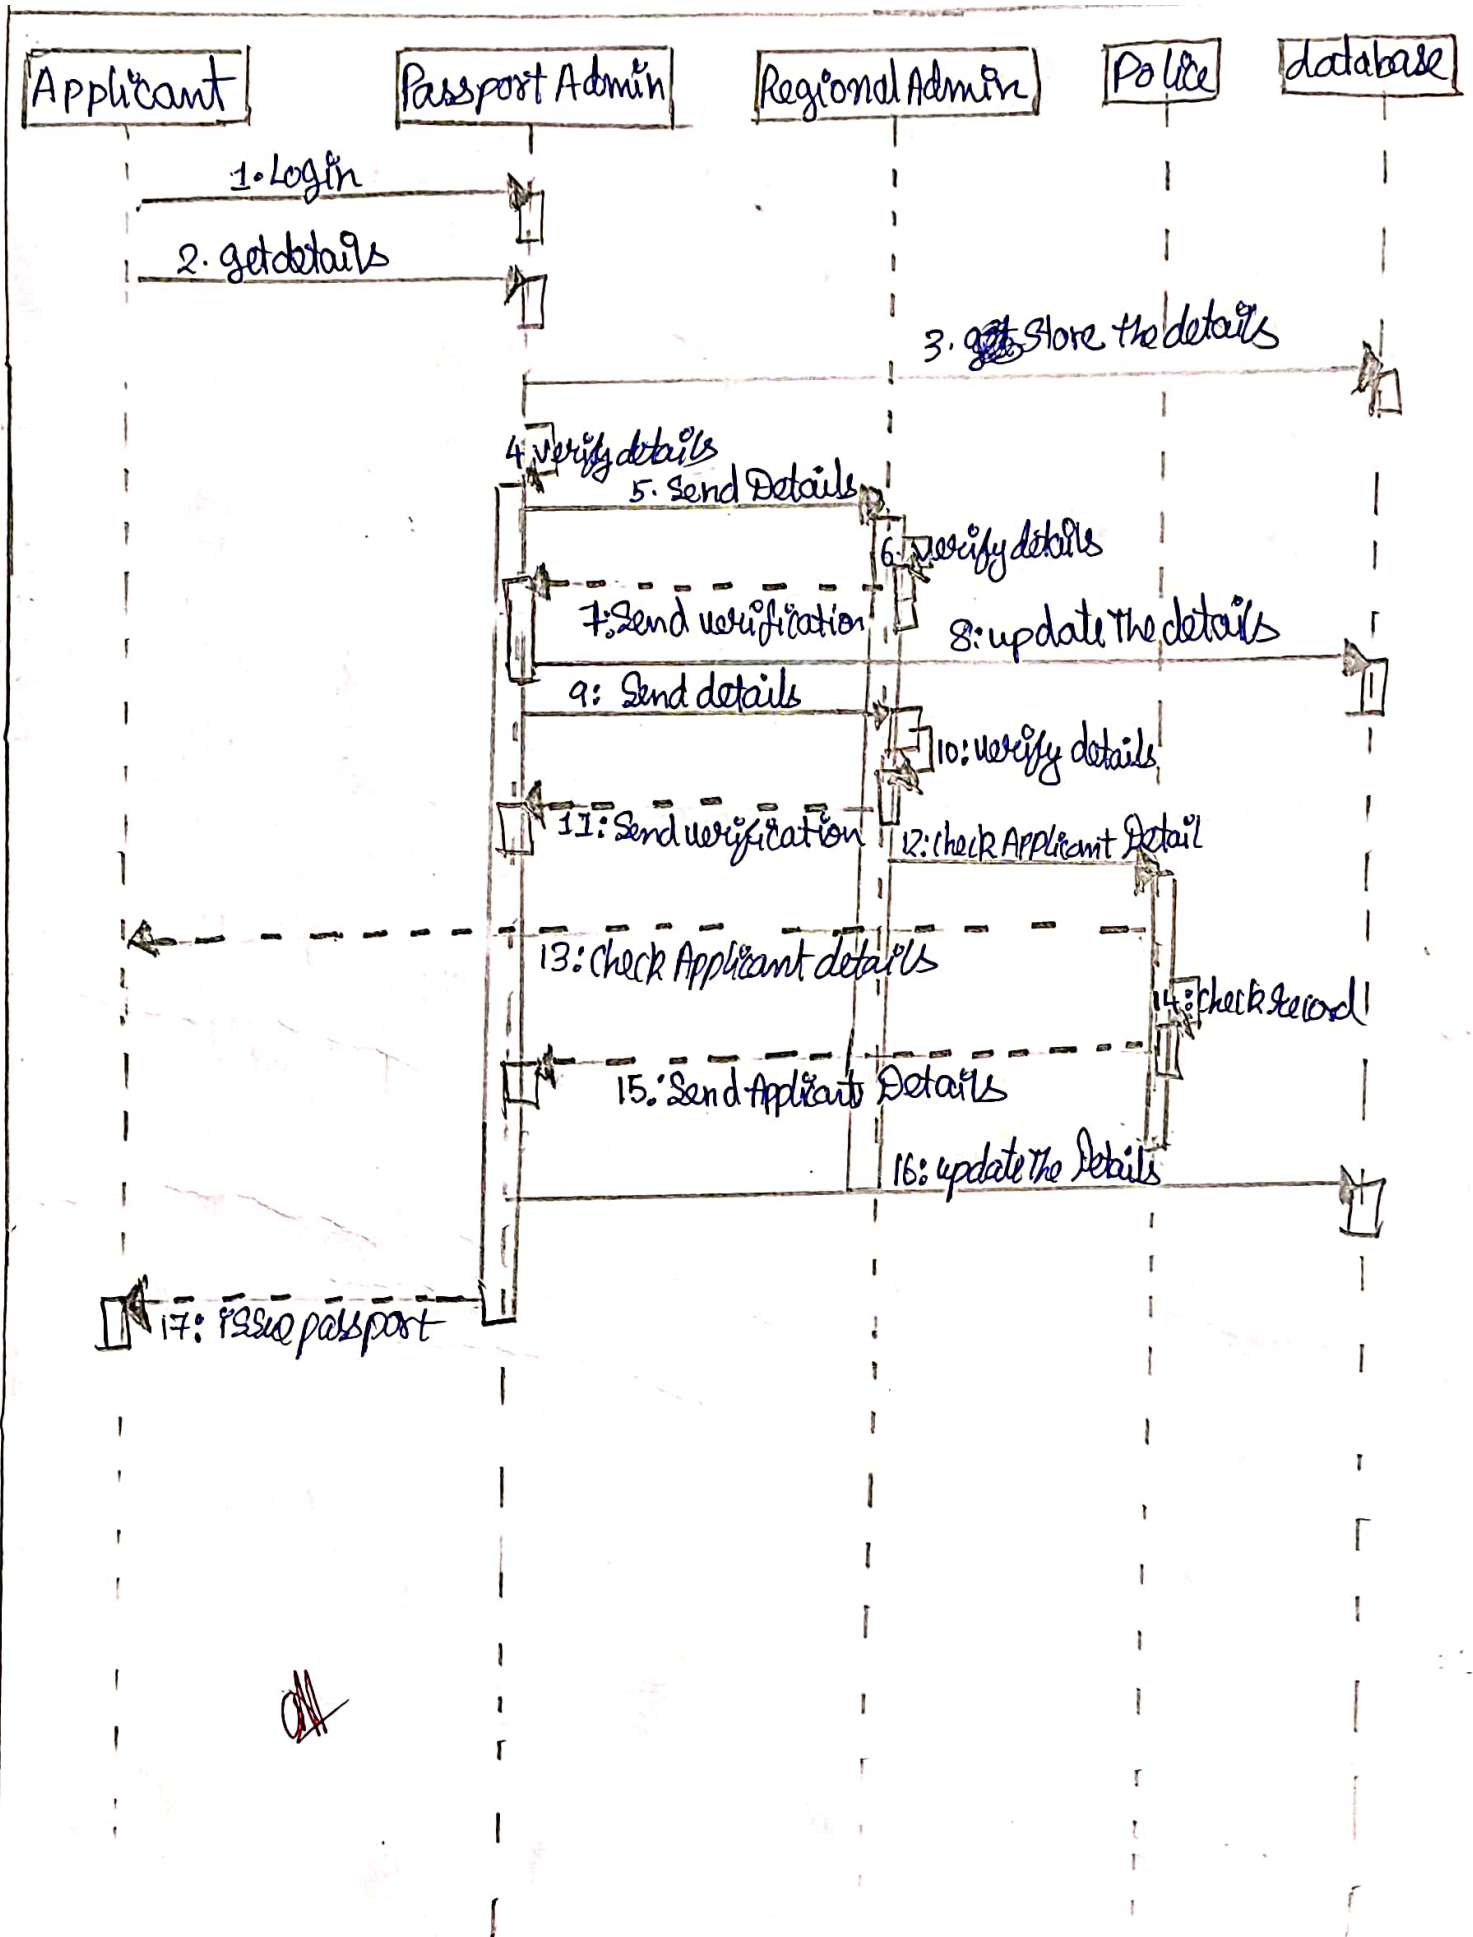 Applicant
Passport Admin
Regional Admin
Police
database
1. Login
2. getdetails
3. Store the details
4 verify details
5. Send Details
6. verify details
7: Send verification
8: update The details
9: Send details
10: verify details
11: Send verification
12: Check Applicant Detail
13: Check Applicant details
14: Check record
15: Send Applicant Details
16: update The Details
17: issue passport